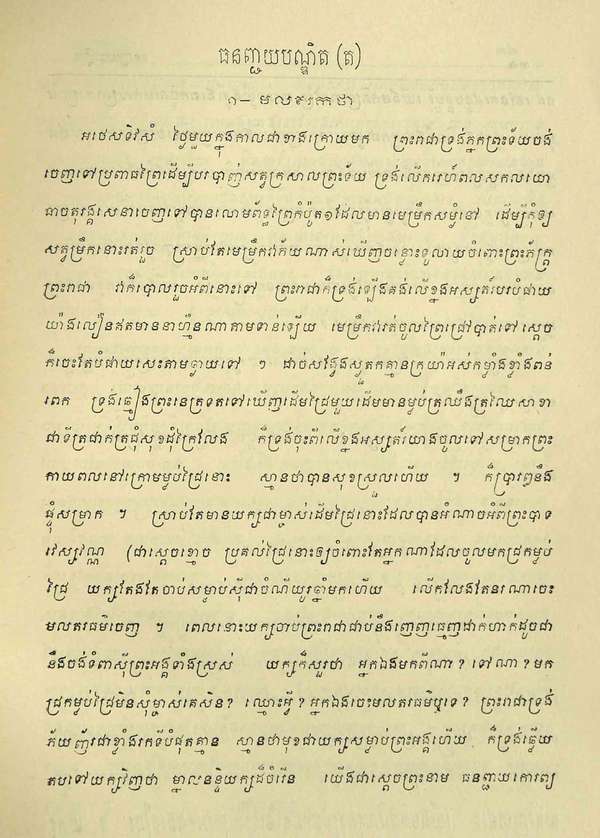 ធនញ្ជយបណ្ឌិត (ត)
១– មលទេវកថា
អថេសទិវសំ ថ្ងៃមួយក្នុងកាលជាខាងក្រោយមក ព្រះរាជាទ្រង់ភ្នកព្រះទ័យចង់
ចេញទៅប្រពាតព្រៃដើម្បីបរបាញ់សត្វក្រសាលព្រះទ័យ ទ្រង់លើករេហ៍ពលសកលយោ
ធាចតុរង្គសេនាចេញទៅបានលោមព័ទ្ធព្រៃកំបុំត១ដែលមានមេម្រឹកសម្ងំនៅ ដើម្បីកុំឲ្យ
សត្វម្រឹកនោះរត់រួច ស្រាប់តែមេម្រឹកវាភ័យណាស់ឃើញចន្លោះទូលាយចំពោះព្រះភ័ក្ត្រ
ព្រះរាជា វាក៏បោលរួចអំពីនោះទៅ ព្រះរាជាក៏ទ្រង់ឡើងគង់លើខ្នងអស្សតរ៍បរបំផាយ
យ៉ាងលឿនឥតមាននាហ្មឺនណាតាមទាន់ឡើយ មេម្រឹកវារត់ចូលព្រៃជ្រៅបាត់ទៅ ស្តេច
ក៏ចេះតែបំផាយសេះតាមធ្លាយទៅ ៗ ដាច់សង្វែងស្ងួតគ្មានក្រយ៉ាអស់កម្លាំងខ្លាំងពន់
ពេក ទ្រង់ឆ្មៀងព្រះនេត្រទតទៅឃើញដើមជ្រៃមួយដើមមានម្លប់ត្រឈឹងត្រឈៃសាខា
ជាទីត្រជាក់ត្រជុំសុខដុំក្រៃលែង ក៏ទ្រង់ចុះពីលើខ្នងអស្សតរ៍យាងចូលទៅសម្រាកព្រះ
កាយពលនៅក្រោមម្លប់ជ្រៃនោះ ស្មានថាបានសុខស្រួលហើយ ។ ក៏ប្រារព្ធនឹង
ផ្ទុំសម្រាក ។ ស្រាប់តែមានយក្សជាម្ចាស់ដើមជ្រៃនោះដែលបានអំណាចអំពីព្រះបាទ
វេស្សវណ្ណ (ជាស្តេចខ្មោច ប្រគល់ជ្រៃនោះឲ្យចំពោះតែអ្នកណាដែលចូលមកជ្រកម្លប់
ជ្រៃ យក្សតែងតែចាប់សម្លាប់ស៊ីជាចំណីយូរឆ្នាំមកហើយ លើកលែងតែនរណាចេះ
មលតវធម៌ចេញ ។ ពេលនោះយក្សចាប់ព្រះរាជាជាប់នឹងញេញធ្មេញដាក់ហាក់ដូចជា
នឹងចង់ទំពាស៊ីព្រះអង្គទាំងស្រស់ យក្សក៏សួរថា អ្នកឯងមកពីណា? ទៅណា? មក
ជ្រកម្លប់ជ្រៃមិនសុំម្ចាស់គេសិន? ឈ្មោះអ្វី? អ្នកឯងចេះមលតវធម៌ឬទេ? ព្រះរាជាទ្រង់
ភ័យញ័រជាខ្លាំងរកទីបំផុតគ្មាន ស្មានថាមុខជាយក្សសម្លាប់ព្រះអង្គហើយ ក៏ទ្រង់ឆ្លើយ
តបទៅយក្សវិញថា ម្នាលនន្ទិយក្សដ៏ចំរើន យើងជាស្តេចព្រះនាម ធនញ្ជាយកោរព្យ